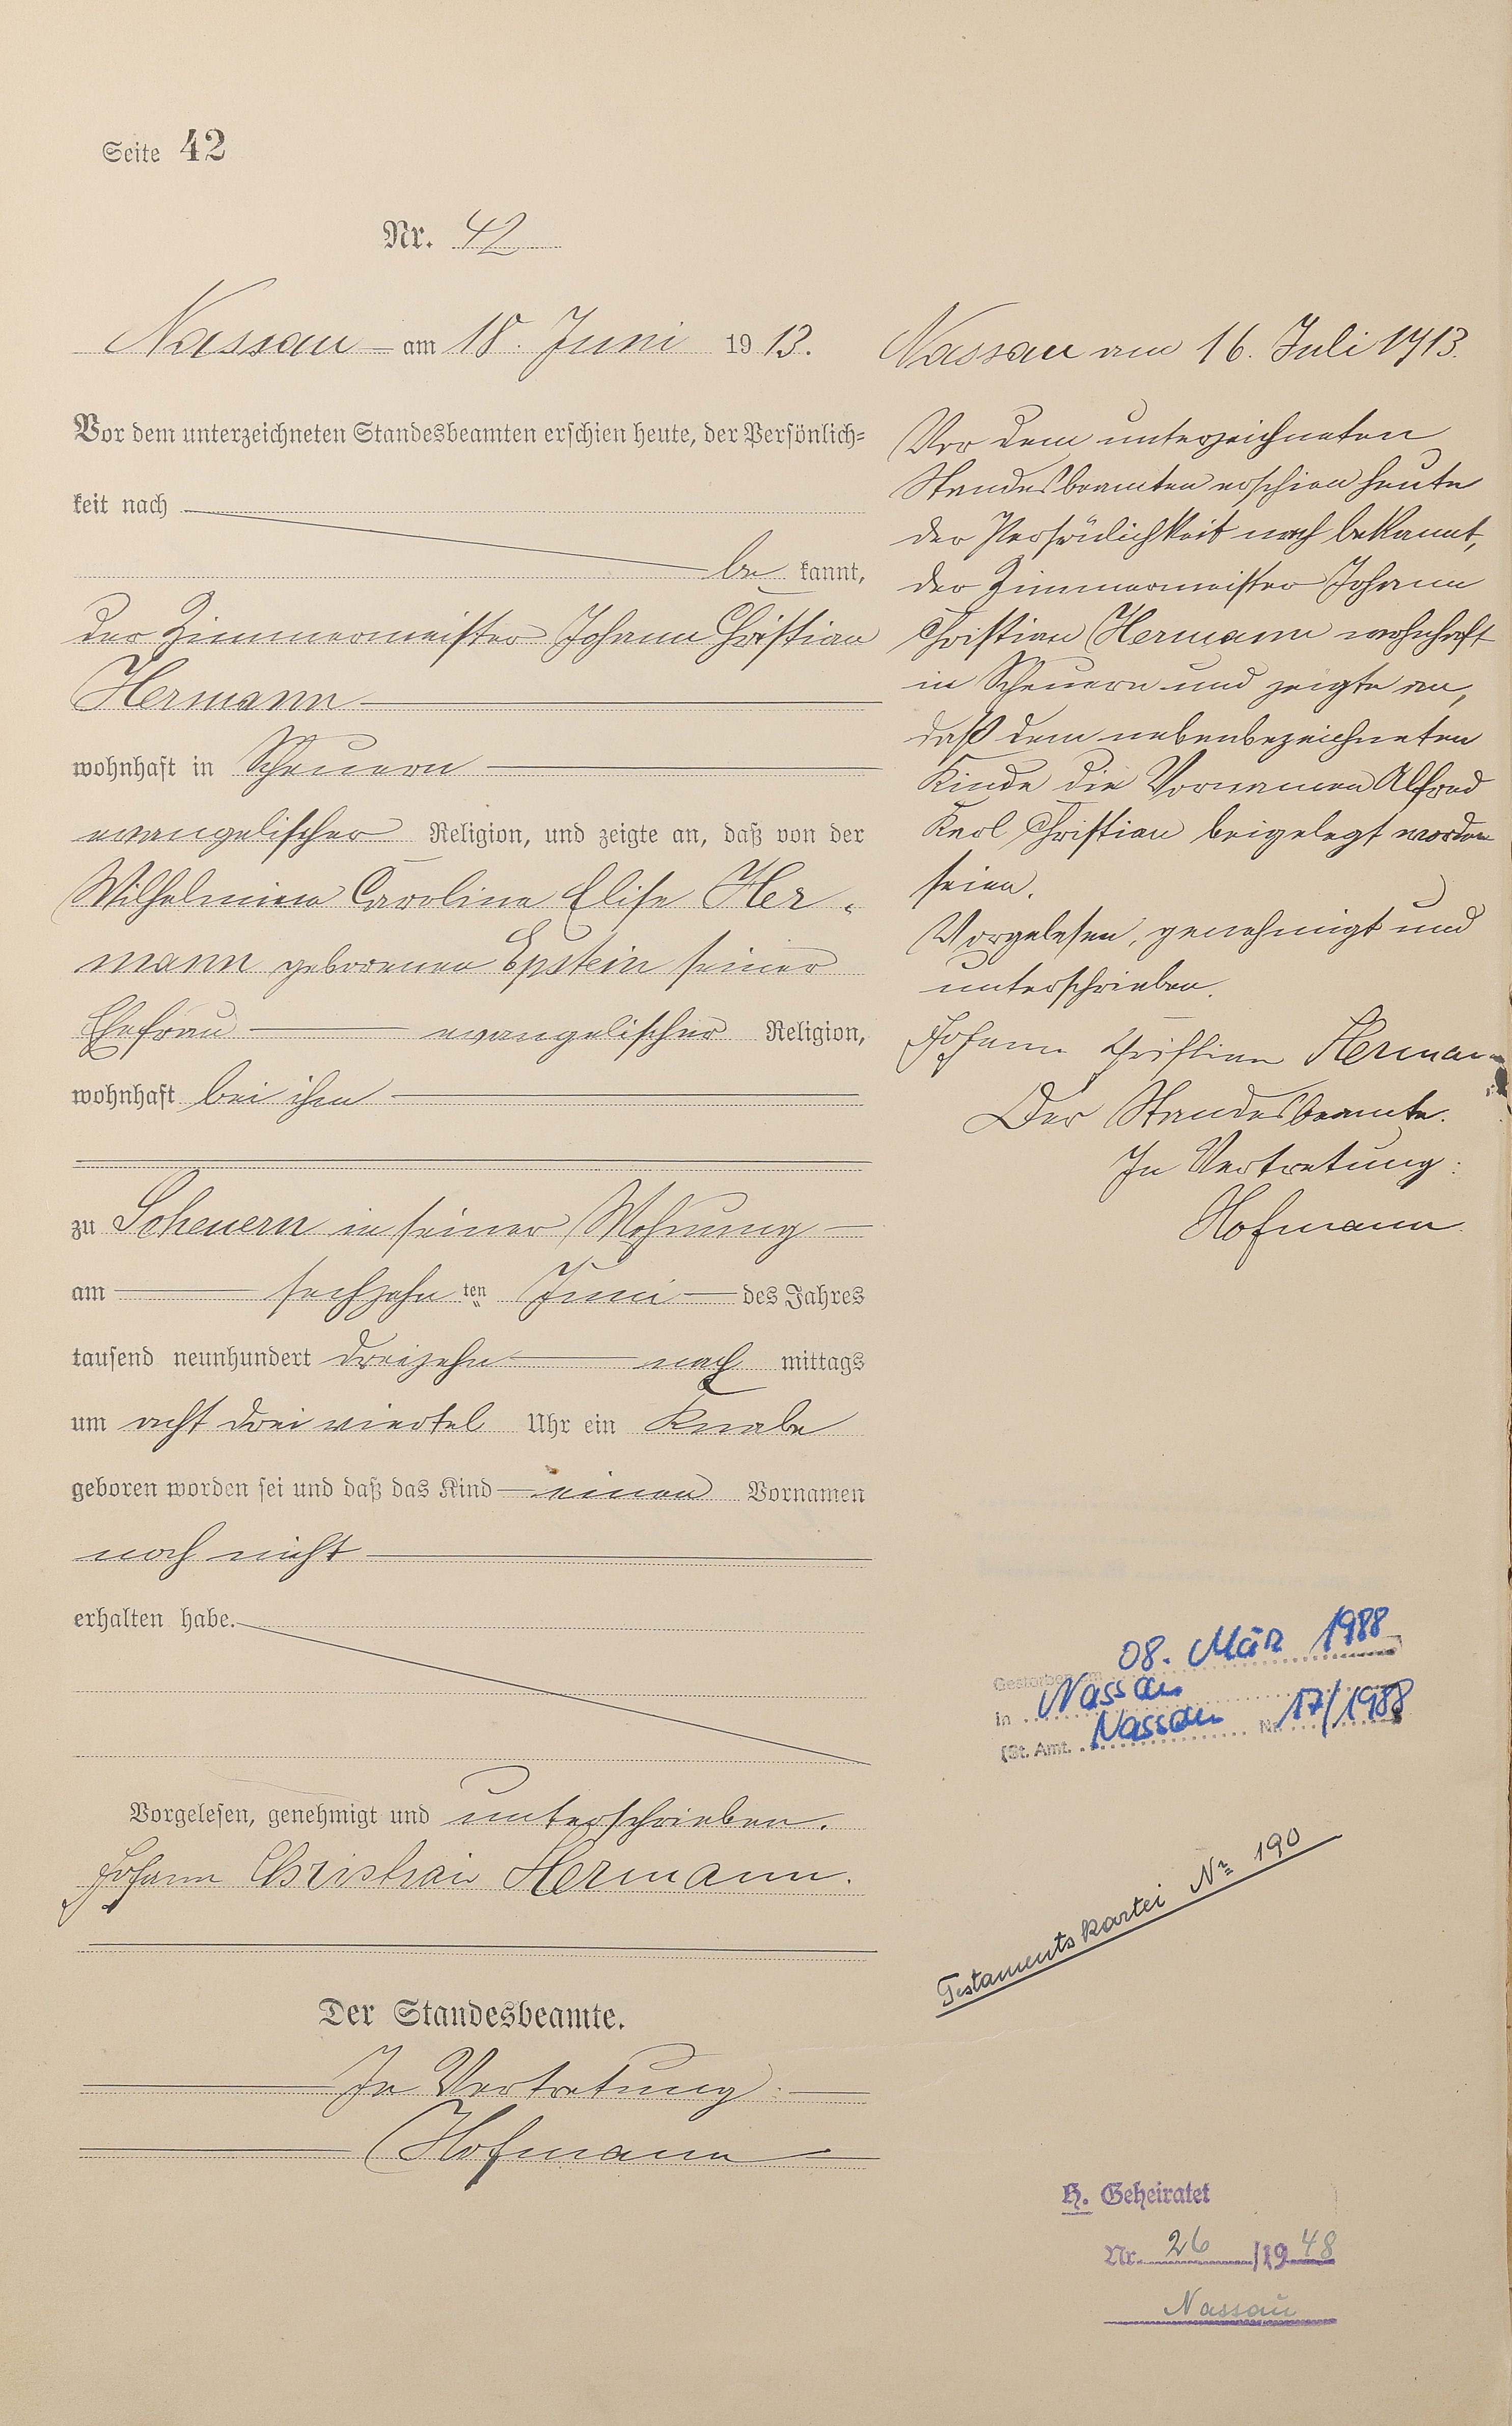 Seite 42
Nr. 42
Nassau am 18. Juni 1913.
Vor dem unterzeichneten Standesbeamten erschien heute, der Persönlich-
keit nach
be kannt,
der Zimmermeister Johann Christian
Hermann
wohnhaft in Scheuern
evangelischer Religion, und zeigte an, daß von der
Wilhelmine Caroline Elise Her-
mann geborenen Epstein seiner
Ehefrau evangelischer Religion,
wohnhaft bei ihm
zu Scheuern in seiner Wohnung
am sechzehn ten Juni des Jahres
tausend neunhundert dreizehn nach mittags
um acht drei viertel Uhr ein Knabe
geboren worden sei und daß das Kind einen Vornamen
noch nicht
erhalten habe.
Vorgelesen, genehmigt und unterschrieben.
Johann Christian Hermann.
Der Standesbeamte.
In Vertretung:
Hofmann
Nassau am 16. Juli 1913.
Vor dem unterzeichneten
Standesbeamten erschien heute
der Persönlichkeit nach bekannt,
der Zimmermeister Johann
Christian Hermann wohnhaft
in Scheuern und zeigte an,
daß dem nebenbezeichneten
Kinde die Vornamen Alfred
Karl Christian beigelegt worden
seien.
Vorgelesen, genehmigt und
unterschrieben.
Johann Christian Hermann
Der Standesbeamte.
In Vertretung:
Hofmann
Gestorben am 08. März 1988
in Nassau
(St. Amt. Nassau Nr. 17/1988
Testamentskartei Nr. 190
H. Geheiratet
Nr. 26 /1948
Nassau